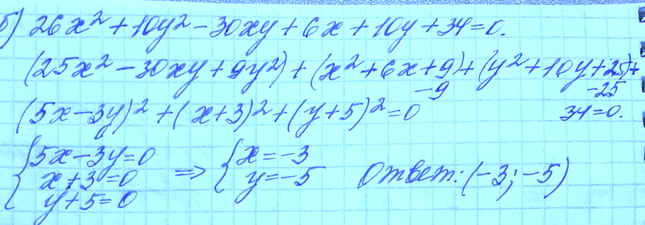 б) 26x² + 10y² - 30xy + 6x + 10y + 34 = 0.
(25x² - 30xy + 9y²) + (x² + 6x + 9) + (y² + 10y + 25) +
-9 -25
(5x - 3y)² + (x + 3)² + (y + 5)² = 0 34 = 0.
{5x - 3y = 0
x + 3 = 0 => {x = -3
y + 5 = 0 y = -5 Ответ: (-3; -5)